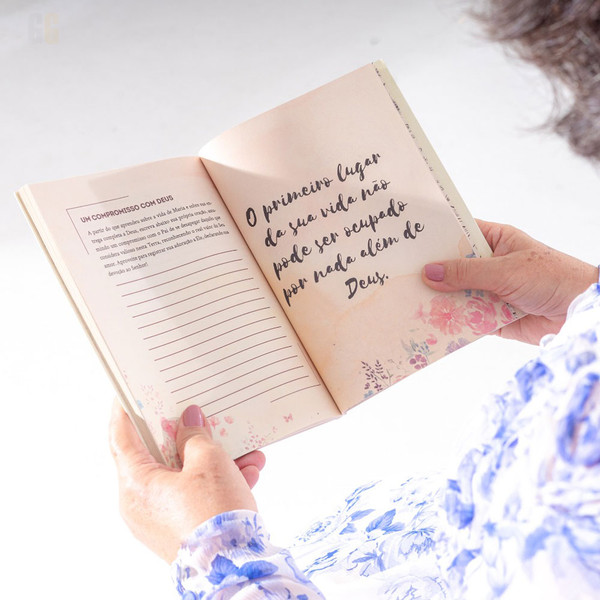 UM COMPROMISSO COM DEUS
A partir do que aprendeu sobre a vida de Maria e sobre sua en-
trega completa a Deus, escreva abaixo sua própria oração, assu-
mindo um compromisso com o Pai de se desapegar daquilo que
considera valioso nesta Terra, reconhecendo o real valor do Seu
amor. Aproveite para registrar sua adoração a Ele, declarando sua
devoção ao Senhor!
O primeiro lugar
da sua vida não
pode ser ocupado
por nada além de
Deus.